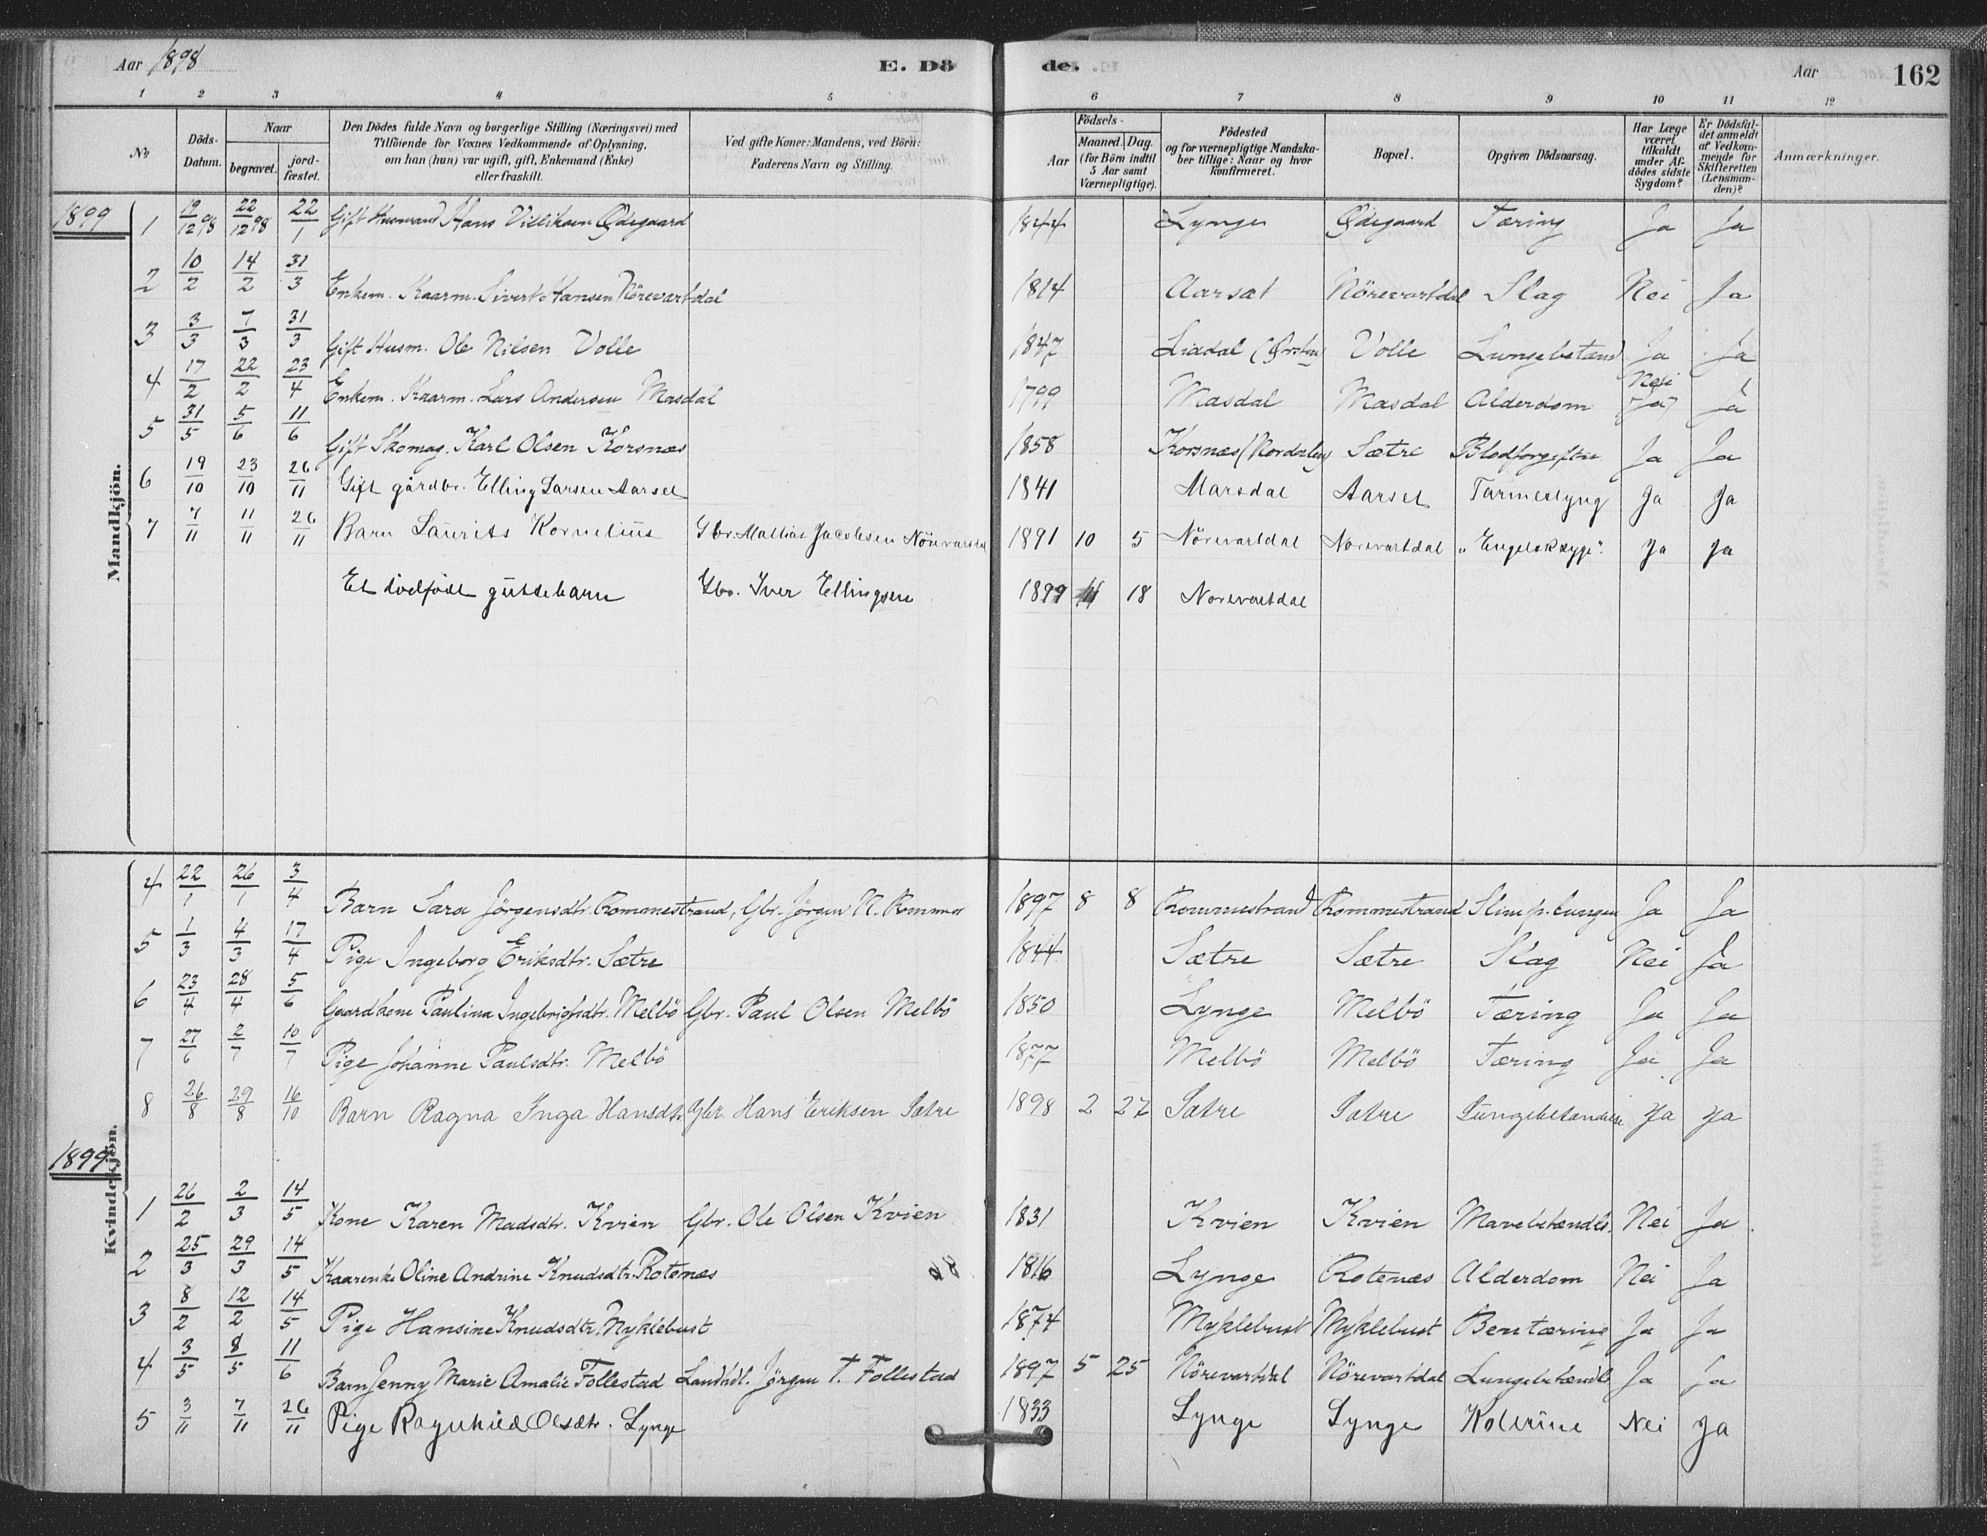 Aar 1898 E. Döde. Aar 162
1 2 3 4 5 6 7 8 9 10 11 12
Nr. Döds-Datum. Naar begravet. jordfæstet. Den Dödes fulde Navn og borgerlige Stilling (Næringsvei) med Tilföiende for Voxnes Vedkommende af Oplysning, om han (hun) var ugift, gift, Enkemand (Enke) eller fraskilt. Ved gifte Koner: Mandens, ved Börn: Faderens Navn og Stilling. Födsels- Aar Maaned. Dag. (for Börn indtil 5 Aar samt Værnepligtige). Födested og for værnepligtige Mandskaber tillige: Naar og hvor konfirmeret. Bopæl. Opgiven Dödsaarsag. Har Læge været tilkaldt under Afdödes sidste Sygdom? Er Dödsfaldet anmeldt af Vedkommende for Skifteretten (Lensmanden)? Anmærkninger.
Mandkjön.
1899 1 19/12 98 22/12 98 22/1 Gift Husmand Hans Villiksen Ødegaard 1844 Lynge Ødegaard Tæring Ja Ja
2 10/2 14/2 31/3 Enkem. Kaarm. Sivert Hansen Nörevartdal 1814 Aarsæt Nörevartdal Slag Nei Ja
3 3/3 7/3 31/3 Gift Husm. Ole Nilsen Volle 1847 Liadal (Ørsten) Volle Lungebetænd Ja Ja
4 17/2 22/2 23/4 Enkem. Kaarm. Lars Andersen Masdal 1799 Masdal Masdal Alderdom Nei (Ja) Ja
5 31/5 5/6 11/6 Gift Skomag. Karl Olsen Korsnæs 1858 Korsnæs (Nordalen) Sætre Blodforgiftn Ja Ja
6 19/10 23/10 26/11 Gift gårdbr. Elling Larsen Aarset 1841 Marsdal Aarset Tarmeslyng Ja Ja
7 7/11 11/11 26/11 Barn Laurits Kornelius Gbr. Mathias Jacobsen Nörevartdal 1891 10 5 Nörevartdal Norevartdal "Engelsksyge". Ja Ja
Et dödfödt guttebarn Gbr. Iver Ellingsen 1899 11 18 Norevartdal
Kvindekjön.
4 22/1 26/1 3/4 Barn Sara Jörgensdtr. Rommestrand, Gbr. Jörgen N. Rommes 1897 8 8 Rommestrand Rommestrand Slim p. lungen Ja Ja
5 1/3 4/3 17/4 Pige Ingeborg Eriksdtr. Sætre 1844 Sætre Sætre Slag Nei Ja
6 23/4 28/4 5/6 Gaardkone Paulina Ingebrigtsdtr. Melbö Gbr. Paul Olsen Melbö 1850 Lynge Melbö Tæring Ja Ja
7 27/6 2/7 10/7 Pige Johanne Paulsdtr. Melbö 1877 Melbö Melbö Tæring Ja Ja
8 26/8 29/8 16/10 Barn Ragna Inga Hansdtr. Gbr. Hans Eriksen Sætre 1898 2 27 Sætre Sætre Lungebetændelse Ja Ja
1899
1 26/2 2/3 14/5 Kone Karen Madsdtr. Kvien Gbr. Ole Olsen Kvien 1831 Kvien Kvien Mavebetændls. Nei Ja
2 25/3 29/3 14/5 Kaarenke Oline Andrine Knudsdtr. Rotenæs 1816 Lynge Rotenæs Alderdom Nei Ja
3 8/2 12/2 14/5 Pige Hansine Knudsdtr. Myklebust 1874 Myklebust Myklebust Bentæring Ja Ja
4 3/5 8/5 11/6 Barn Jenny Marie Amalie Follestad Landhdl. Jörgen T. Follestad 1897 5 25 Nörevartdal Nörevartdal Lungebetændls Ja Ja
5 3/11 7/11 26/11 Pige Ragnhild Olsdtr. Lynge 1833 Lynge Lynge Kolerine Nei Ja